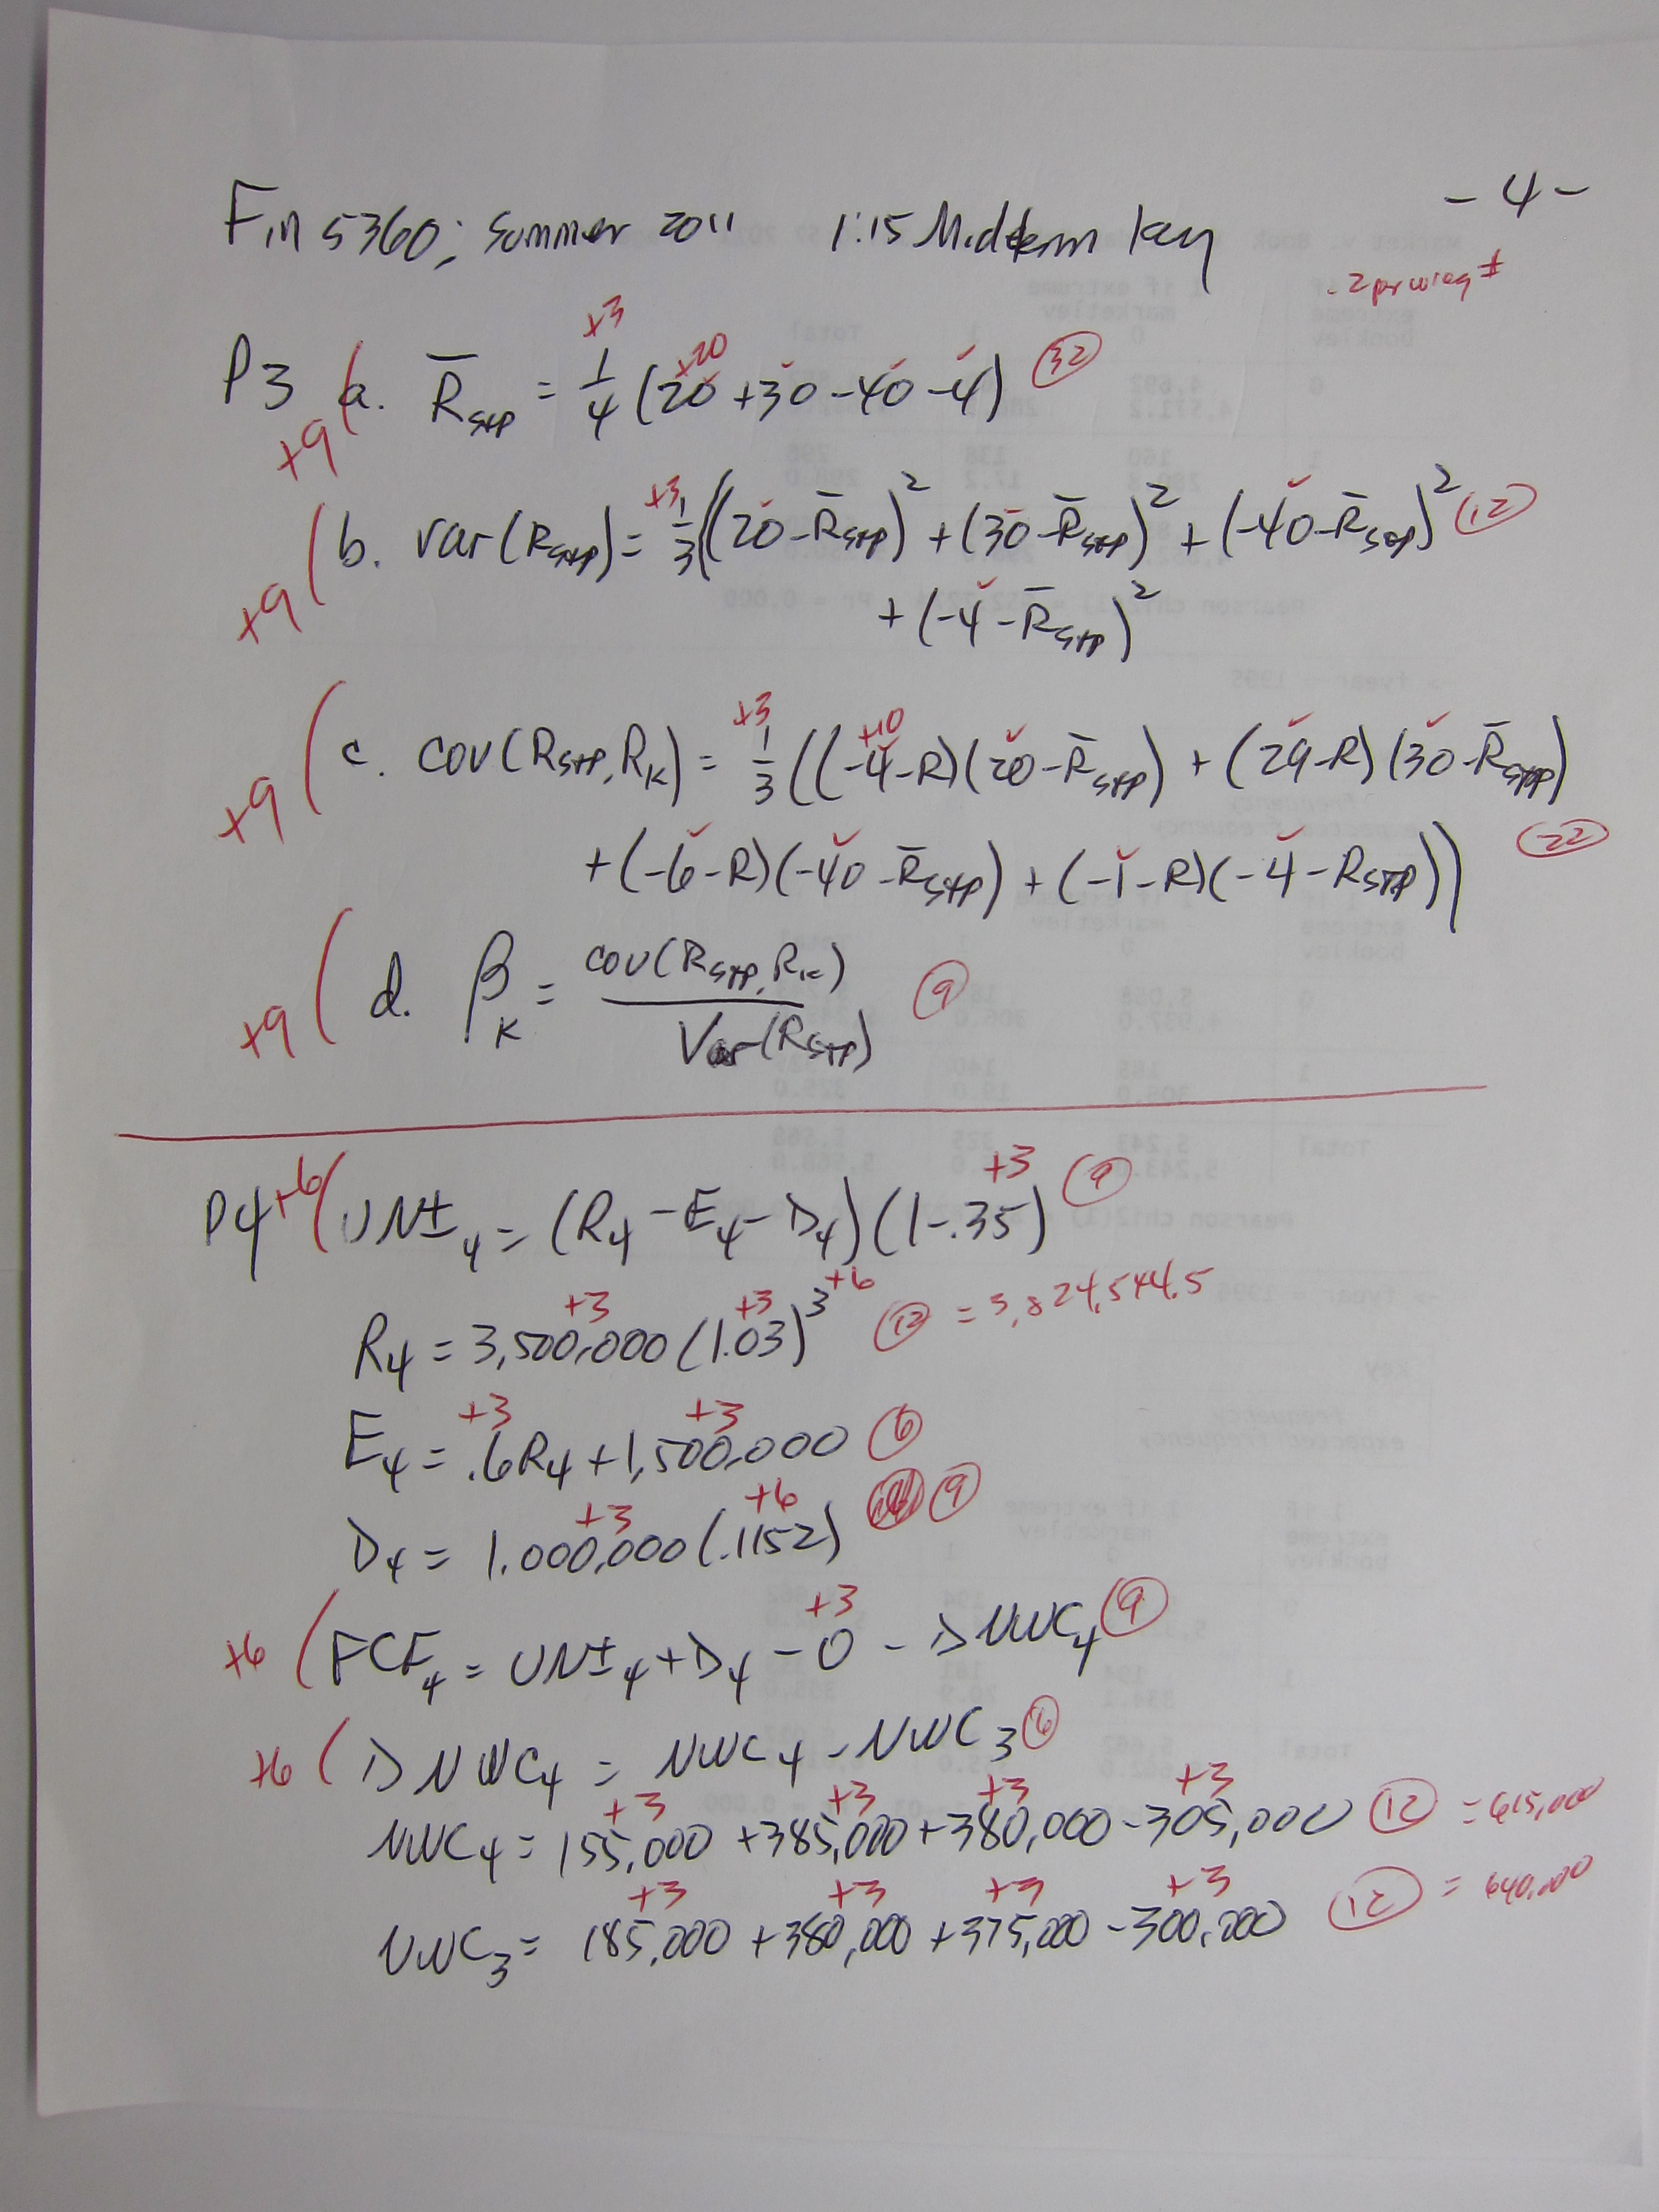 - 4 -
Fin 5360; Summer 2011 1:15 Midterm key
-2 per wrong #
+3 +20
P3 a. R̄S+P = 1/4 (20 + 30 - 40 - 4) 32
+9
+3
b. var(RS+P) = 1/3((20 - R̄S+P)² + (30 - R̄S+P)² + (-40 - R̄S+P)² 12
+9 + (-4 - R̄S+P)²
+3 +10
c. cov(RS+P, RK) = 1/3 ((-4 - R)(20 - R̄S+P) + (29 - R)(30 - R̄S+P)
+9
+ (-6 - R)(-40 - R̄S+P) + (-1 - R)(-4 - RS+P)) 22
d. βK = cov(RS+P, RK) / Var(RS+P) 9
+9
+3
P4 +6 UNI4 = (R4 - E4 - D4)(1 - .35) 9
+3 +3 +6
R4 = 3,500,000 (1.03)³ 12 = 3,824,544.5
+3 +3
E4 = .6R4 + 1,500,000 6
+3 +6
D4 = 1,000,000 (.1152) 9
+3
+6 FCF4 = UNI4 + D4 - 0 - ΔNWC4 9
+6 ΔNWC4 = NWC4 - NWC3 6
+3 +3 +3 +3
NWC4 = 155,000 + 385,000 + 380,000 - 305,000 12 = 615,000
+3 +3 +3 +3
NWC3 = 185,000 + 380,000 + 375,000 - 300,000 12 = 640,000